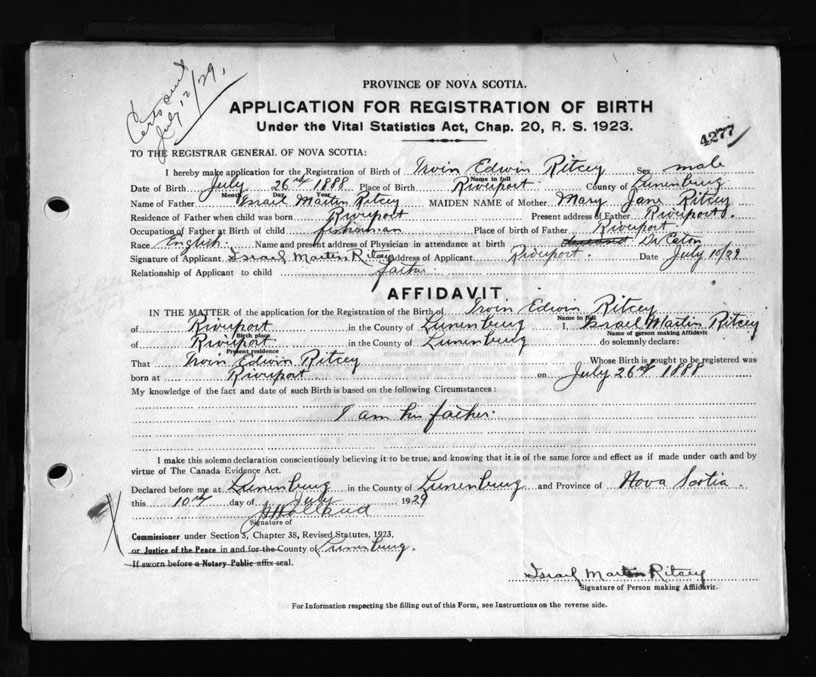 Certs sent
July 12/29.
PROVINCE OF NOVA SCOTIA.
APPLICATION FOR REGISTRATION OF BIRTH
Under the Vital Statistics Act, Chap. 20, R. S. 1923.
4277
TO THE REGISTRAR GENERAL OF NOVA SCOTIA:
I hereby make application for the Registration of Birth of Irvin Edwin Ritcey Sex male
Name in full
Date of Birth July 26th 1888 Place of Birth Riverport County of Lunenburg
Month Day Year
Name of Father Israel Martin Ritcey MAIDEN NAME of Mother Mary Jane Ritcey
Residence of Father when child was born Riverport Present address of Father Riverport.
Occupation of Father at Birth of child fisherman Place of birth of Father Riverport
Race English Name and present address of Physician in attendance at birth deceased Dr Eaton
Signature of Applicant Israel Martin Ritcey Address of Applicant Riverport. Date July 10/29
Relationship of Applicant to child father
AFFIDAVIT
IN THE MATTER of the application for the Registration of the Birth of Irvin Edwin Ritcey
Name in full
of Riverport in the County of Lunenburg I, Israel Martin Ritcey
Birth place Name of person making Affidavit
of Riverport in the County of Lunenburg do solemnly declare:
Present residence
That Irvin Edwin Ritcey Whose Birth is sought to be registered was
born at Riverport. on July 26th 1888
My knowledge of the fact and date of such Birth is based on the following Circumstances:
I am his father.
I make this solemn declaration conscientiously believing it to be true, and knowing that it is of the same force and effect as if made under oath and by
virtue of The Canada Evidence Act.
Declared before me at Lunenburg in the County of Lunenburg and Province of Nova Scotia.
this 10th day of July 1929
Signature of
Commissioner under Section 3, Chapter 38, Revised Statutes, 1923,
or Justice of the Peace in and for the County of Lunenburg.
If sworn before a Notary Public affix seal.
Israel Martin Ritcey
Signature of Person making Affidavit.
For Information respecting the filling out of this Form, see Instructions on the reverse side.